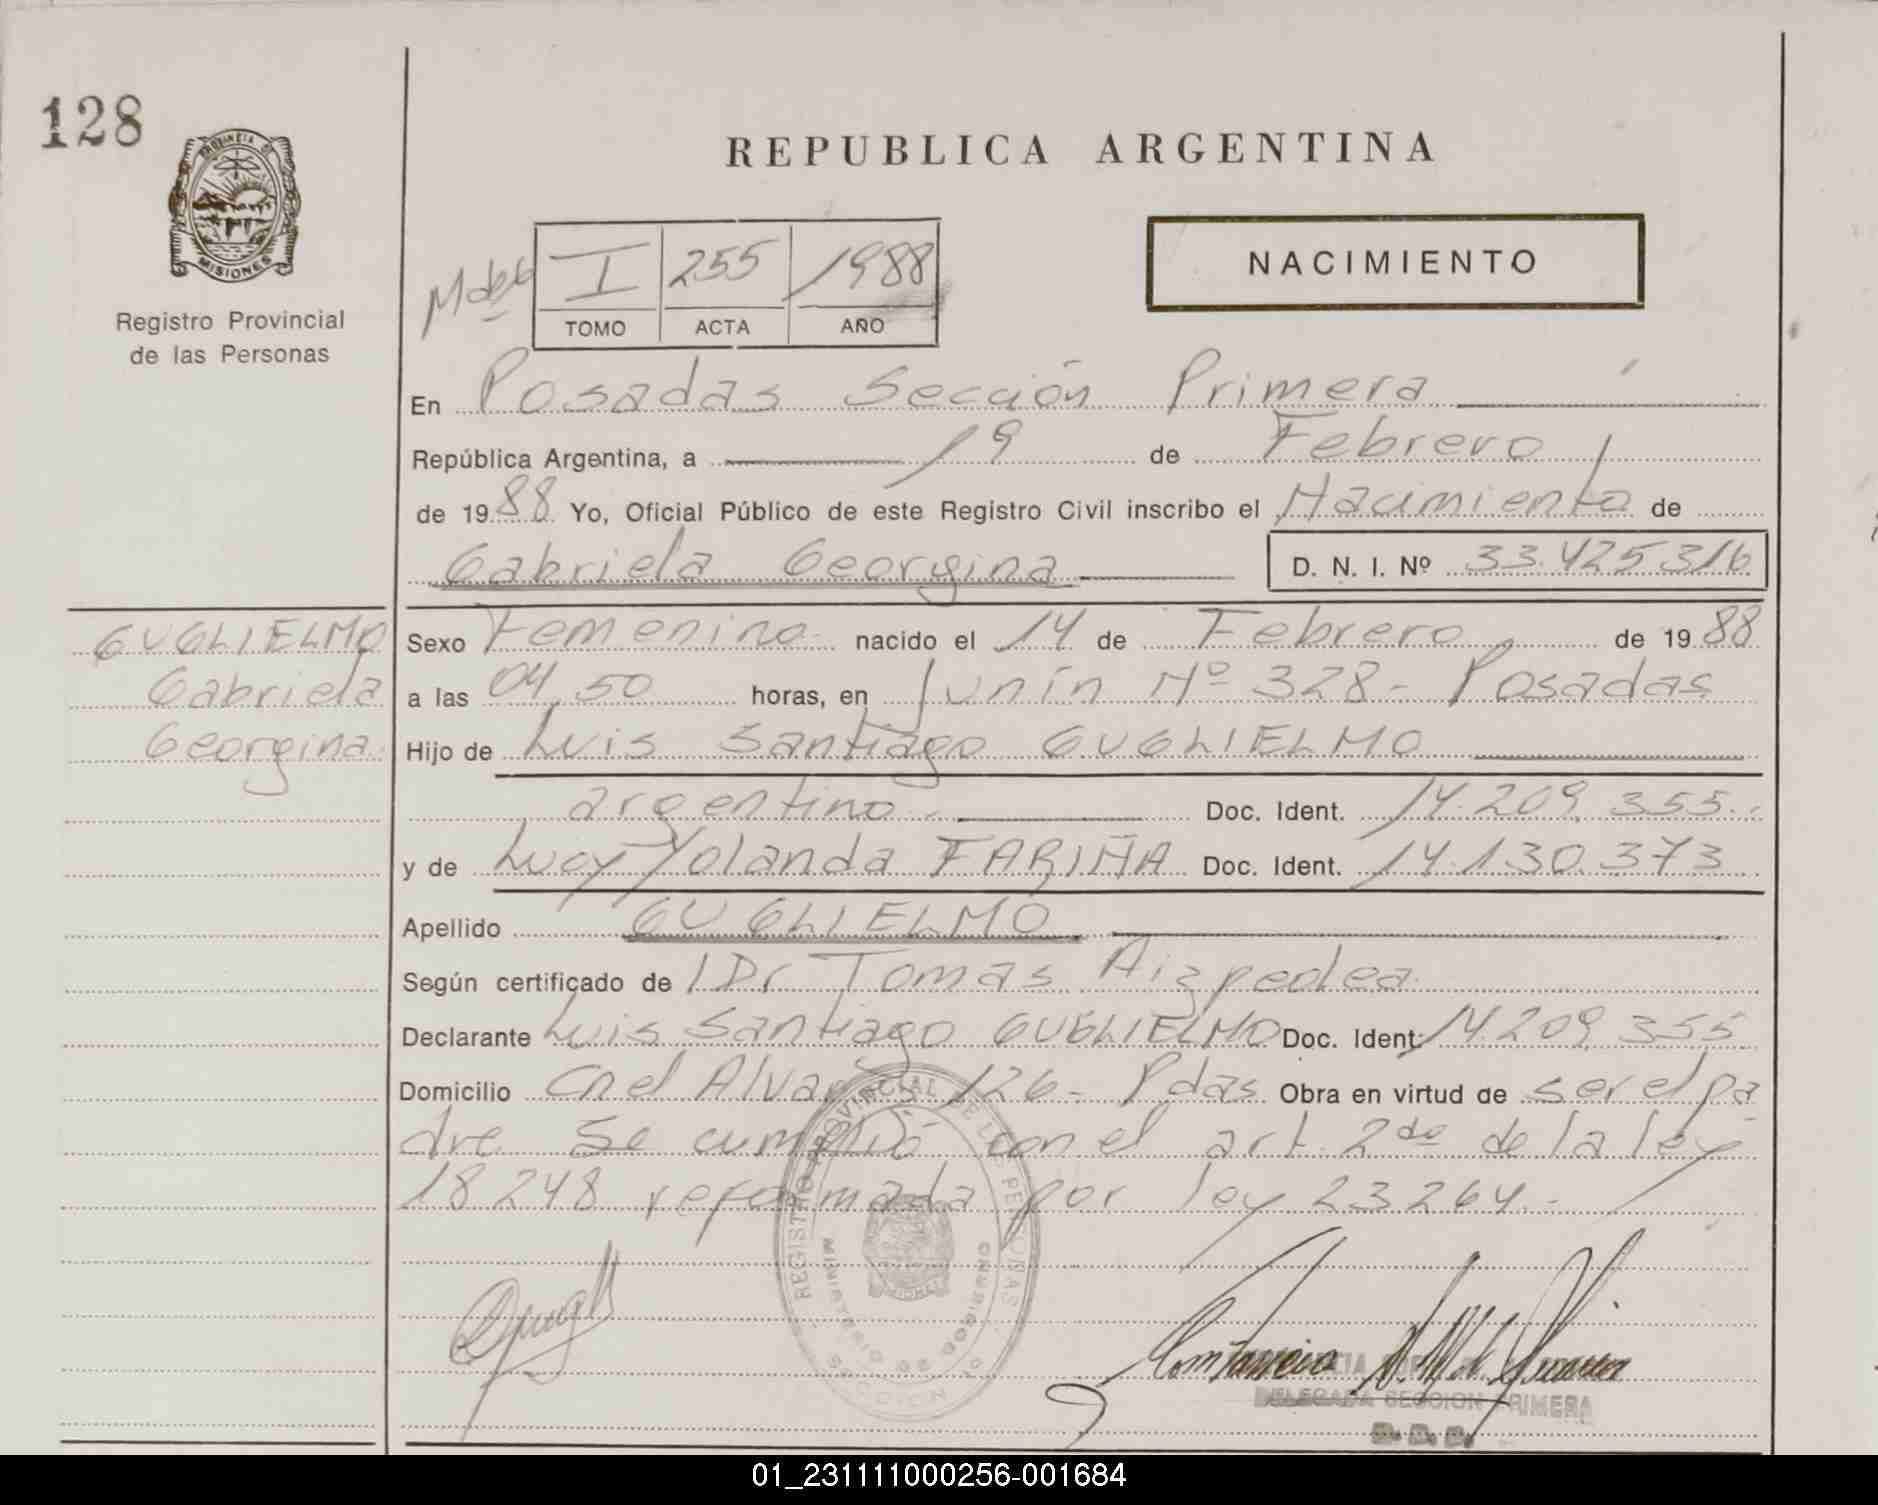 128
PROVINCIA D
MISIONES
Registro Provincial
de las Personas
REPUBLICA ARGENTINA
I 255 1988
TOMO ACTA AÑO
NACIMIENTO
En Posadas Sección Primera
República Argentina, a 19 de Febrero
de 1988 Yo, Oficial Público de este Registro Civil inscribo el Nacimiento de
Gabriela Georgina D. N. I. Nº 33.425316
GUGLIELMO
Gabriela
Georgina.
Sexo Femenino nacido el 14 de Febrero de 1988
a las 04,50 horas, en Junín Nº 328- Posadas
Hijo de Luis Santiago GUGLIELMO
argentino. Doc. Ident. 14.209.355.
y de Lucy Yolanda FARIÑA Doc. Ident. 14.130.373
Apellido GUGLIELMO
Según certificado de Dr Tomas
Declarante Luis Santiago GUGLIELMO Doc. Ident: 14.209.355
Domicilio Cnel Alvarez 126- Pdas Obra en virtud de ser el pa
dre Se cumplió con el art. 2do de la ley
18248 reformada por ley 23264.-
REGISTRO PROVINCIAL DE LAS PERSONAS
MINISTERIO DE GOBIERNO
SECCION
DELEGADA SECCION PRIMERA
01_231111000256-001684